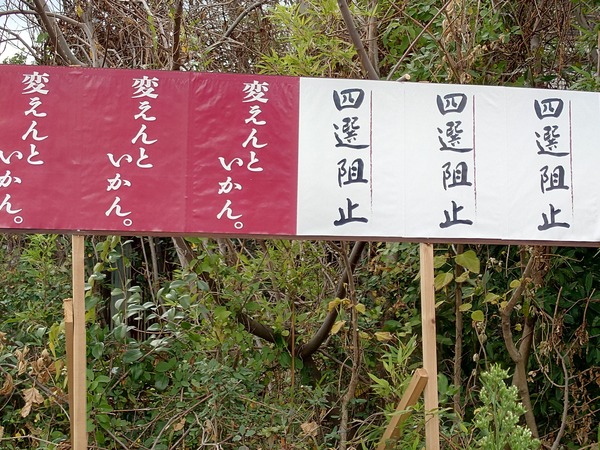 変えんと
いかん。
変えんと
いかん。
変えんと
いかん。
四選阻止
四選阻止
四選阻止